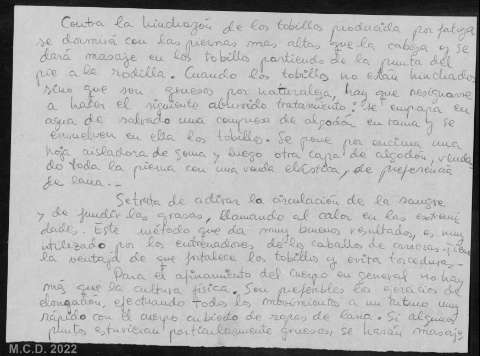 Contra la hinchazón de los tobillos producida por fatiga
se dormirá con las piernas más altas que la cabeza y se
dará masaje en los tobillos partiendo de la punta del
pie a la rodilla. Cuando los tobillos no están hinchados
sino que son gruesos por naturaleza, hay que resignarse
a hacer el siguiente aburrido tratamiento: Se empapa en
agua de salvado una compresa de algodón en rama y se
envuelven en ella los tobillos. Se pone por encima una
hoja aisladora de goma y luego otra capa de algodón, venda
do toda la pierna con una venda elástica, de preferencia
de lana.--
Se trata de activar la circulación de la sangre
y de fundir las grasas, llamando al calor en las extremi
dades. Este método que da muy buenos resultados, es muy
utilizado por los entrenadores de los caballos de carreras
la ventaja de que fortalece los tobillos y evita torceduras.-
Para el afinamiento del cuerpo en general no hay
más que la cultura física. Son preferibles los ejercicios de
elongación, efectuando todos los movimientos a un ritmo muy
rápido con el cuerpo cubierto de ropas de lana. Si algunos
puntos estuvieran particularmente gruesos se harán masaje
M.C.D. 2022